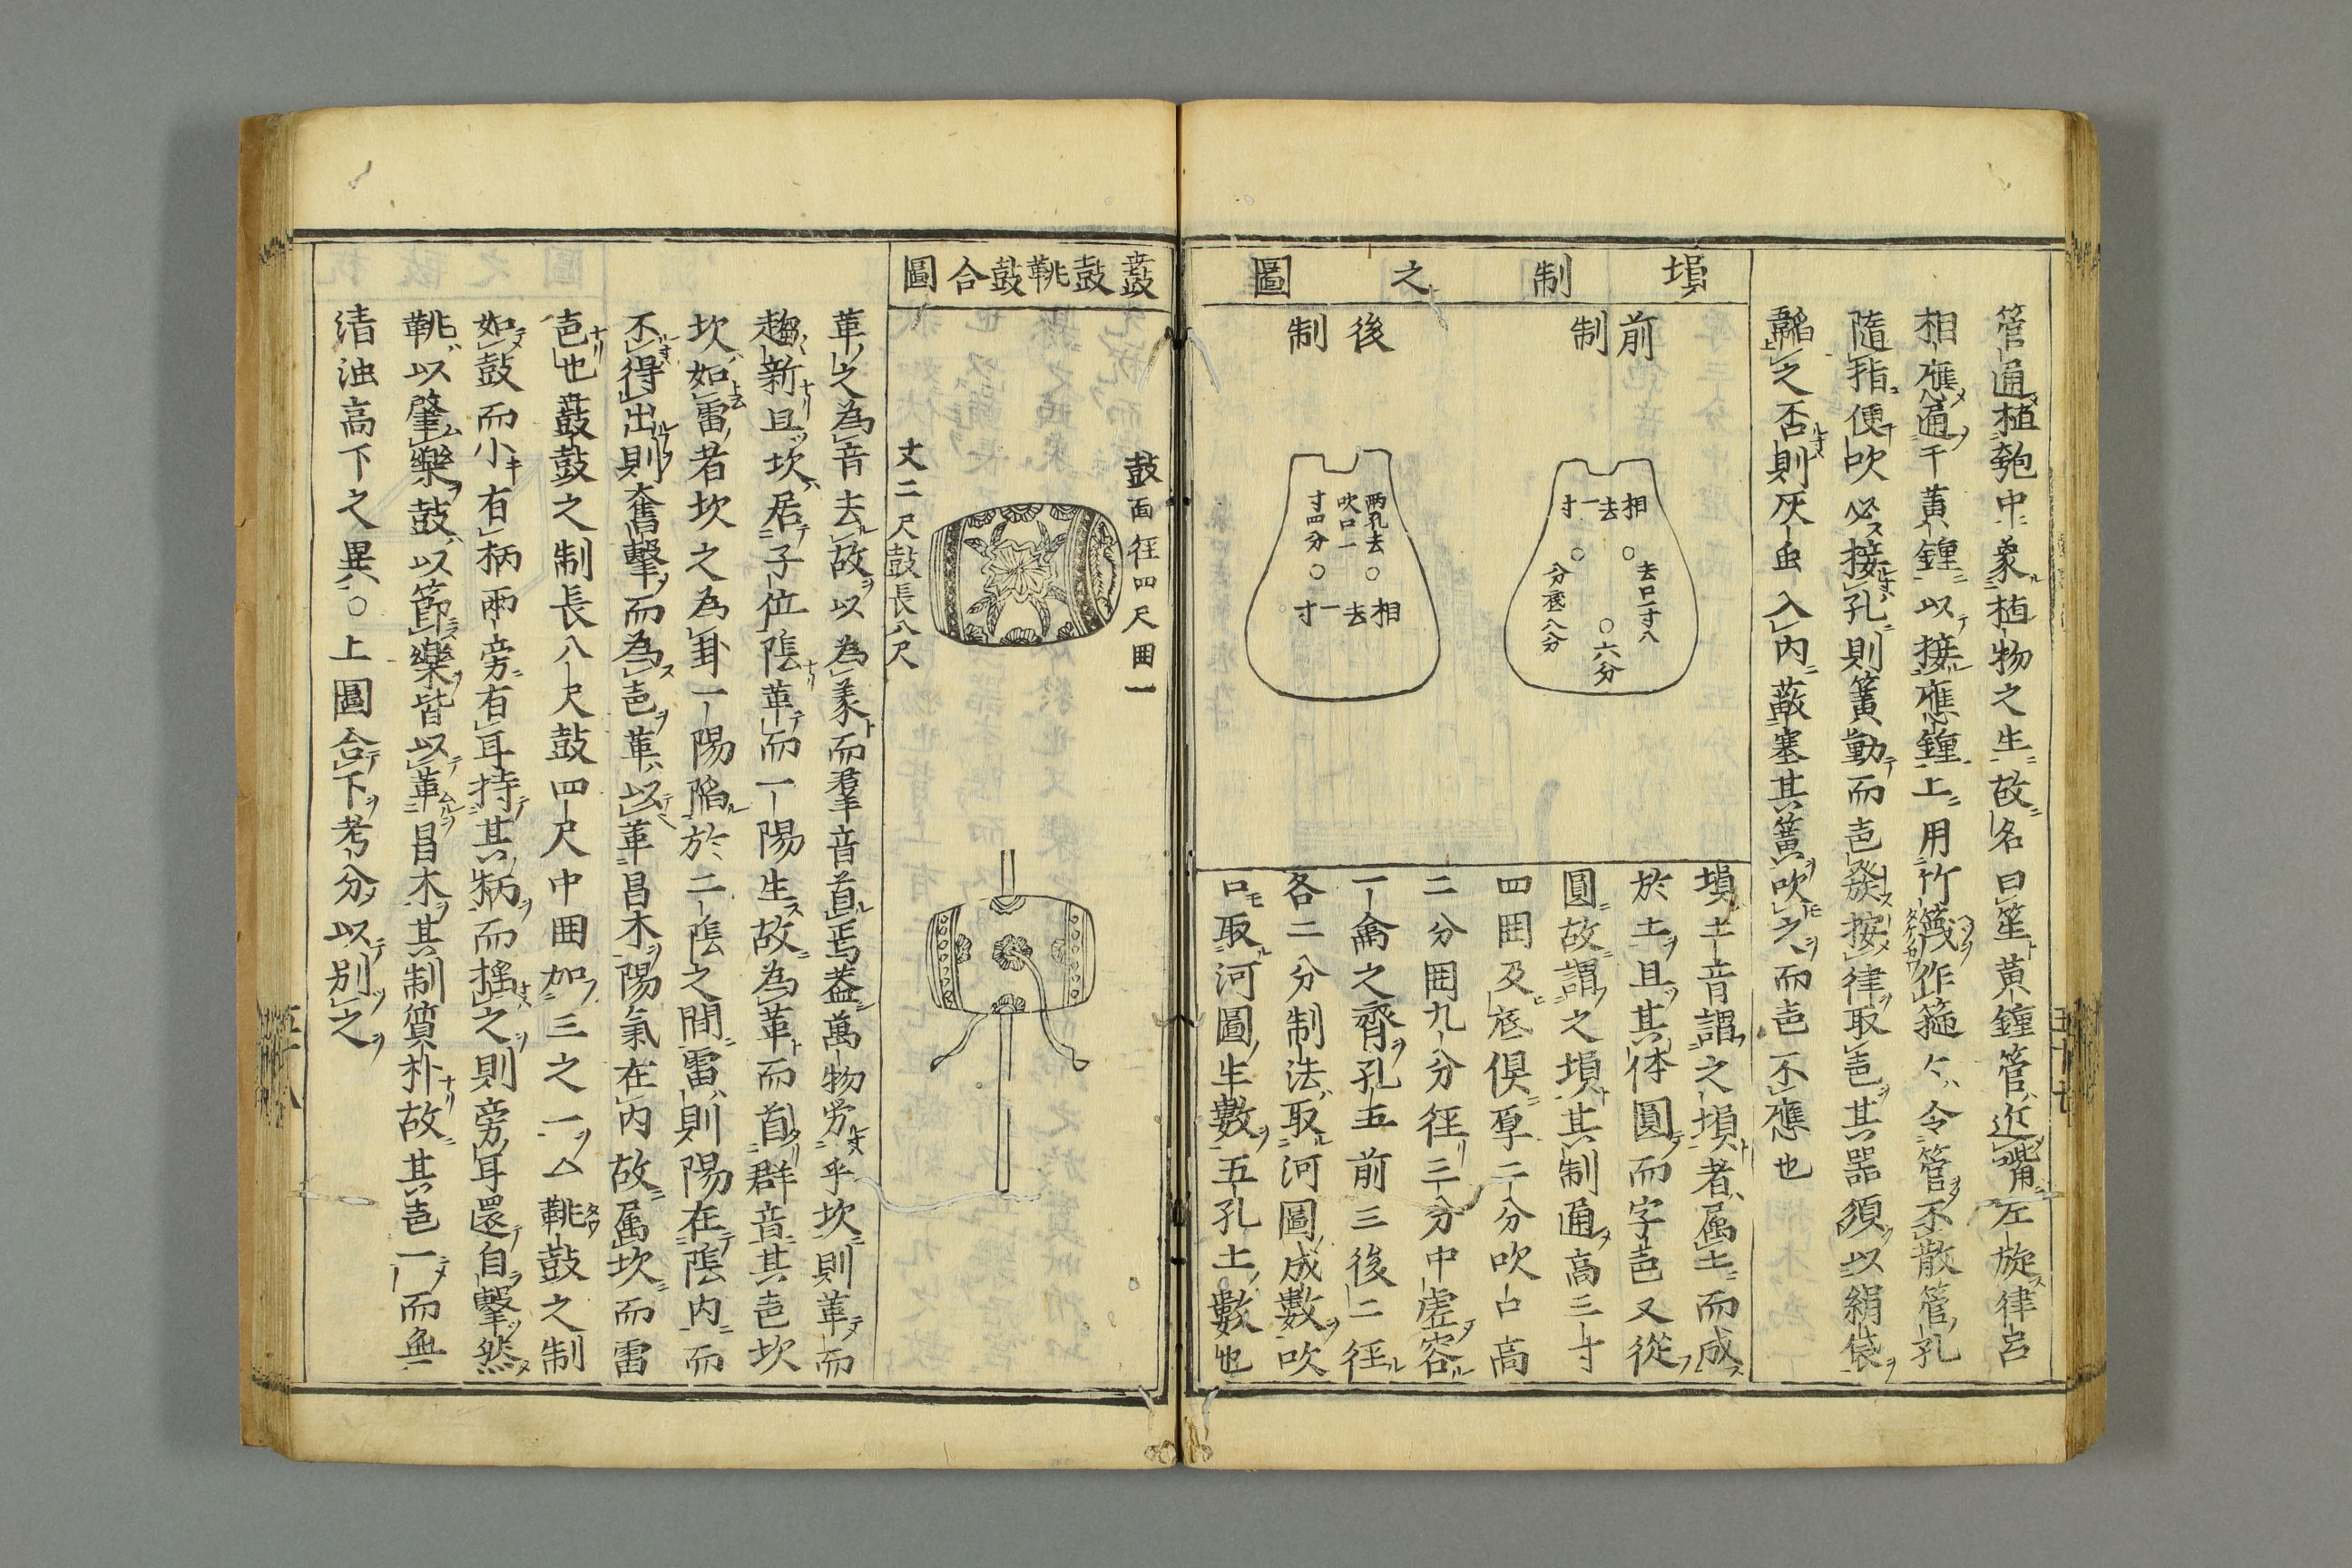 管通植匏中象植物之生故名曰笙黄鐘管近嘴左旋律呂
相應通千黄鐘以接應鐘上用竹篾作箍々令管不散管孔
隨指便吹必接孔則簧動而声發按律取声其噐須以絹袋
韜之否則灰虫入内蔽塞其簧吹之而声不應也
塤制之圖
前制
相去一寸
去口一寸八分底八分
六分
後制
兩孔去吹口一寸四分
相去一寸
塤土音謂之塤者属土而成
於土且其体圓而字声又從
圓故謂之塤其制通高三寸
四囲及底俱厚二分吹口高
二分囲九分径三分中虗容
一龠之齊孔五前三後二径
各二分制法取河圖成數吹
口取河圖生數五孔土數也
五十七
鼖鼓鞉鼓合圖
鼓面径四尺囲一
丈二尺鼓長八尺
革之為音去故以為義而羣音首焉蓋萬物労乎坎則革而
趨新且坎居子位陰革而一陽生故為革而首群音其声坎
坎如雷者坎之為卦一陽陷於二陰之間雷則陽在陰内而
不得出則奮擊而為声革以革昌木陽氣在内故属坎而雷
声也鼖鼓之制長八尺鼓四尺中囲加三之一△鞉鼓之制
如鼓而小有柄兩旁有耳持其柄而揺之則旁耳還自擊然
鞉以肇樂鼓以節樂皆以革昌木其制質朴故其声一而無
清浊高下之異○上圖合下考分以别之
五十八